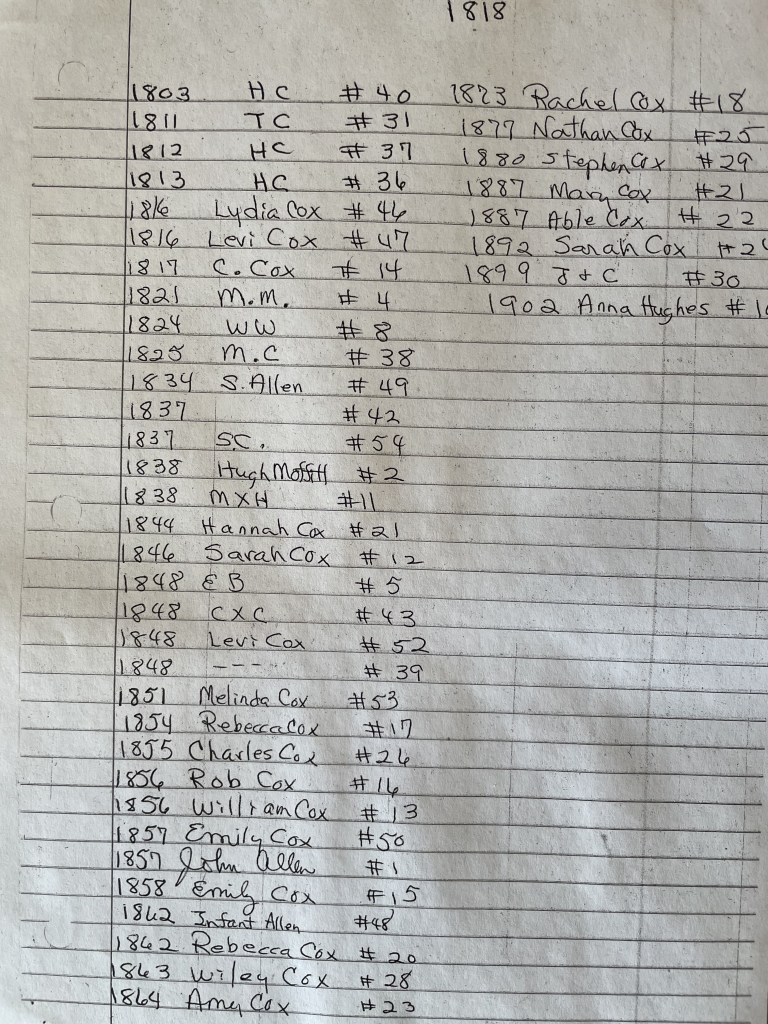 1818
1803 HC # 40 1873 Rachel Cox #18
1811 TC # 31 1877 Nathan Cox #25
1812 HC # 37 1880 Stephen Cox #29
1813 HC # 36 1887 Mary Cox #21
1816 Lydia Cox # 46 1887 Able Cox # 22
1816 Levi Cox # 47 1892 Sarah Cox
1817 C. Cox # 14 1899 J + C #30
1821 M.M. # 4 1902 Anna Hughes
1824 WW # 8
1825 M.C # 38
1834 S. Allen # 49
1837 #42
1837 S.C. #54
1838 Hugh #2
1838 MXH #11
1844 Hannah Cox #21
1846 Sarah Cox # 12
1848 E B # 5
1848 CXC # 43
1848 Levi Cox # 52
1848 ---- # 39
1851 Melinda Cox #53
1854 Rebecca Cox #17
1855 Charles Cox #26
1856 Rob Cox #16
1856 William Cox # 13
1857 Emily Cox #50
1857 John Allen #1
1858 Emily Cox #15
1862 Infant Allen #48
1862 Rebecca Cox # 20
1863 Wiley Cox # 28
1864 Amy Cox #23